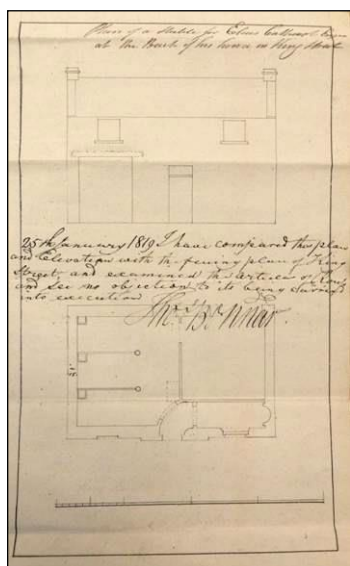 Plan of a Stable for Edmd Esqr
at the Back of his house in King Street
25th January 1819 I have compared this plan
and Elevation with the feuing plan of King
Street, and examined the articles of Roup
and see no objection to its being carried
into execution
Thos Bonnar.